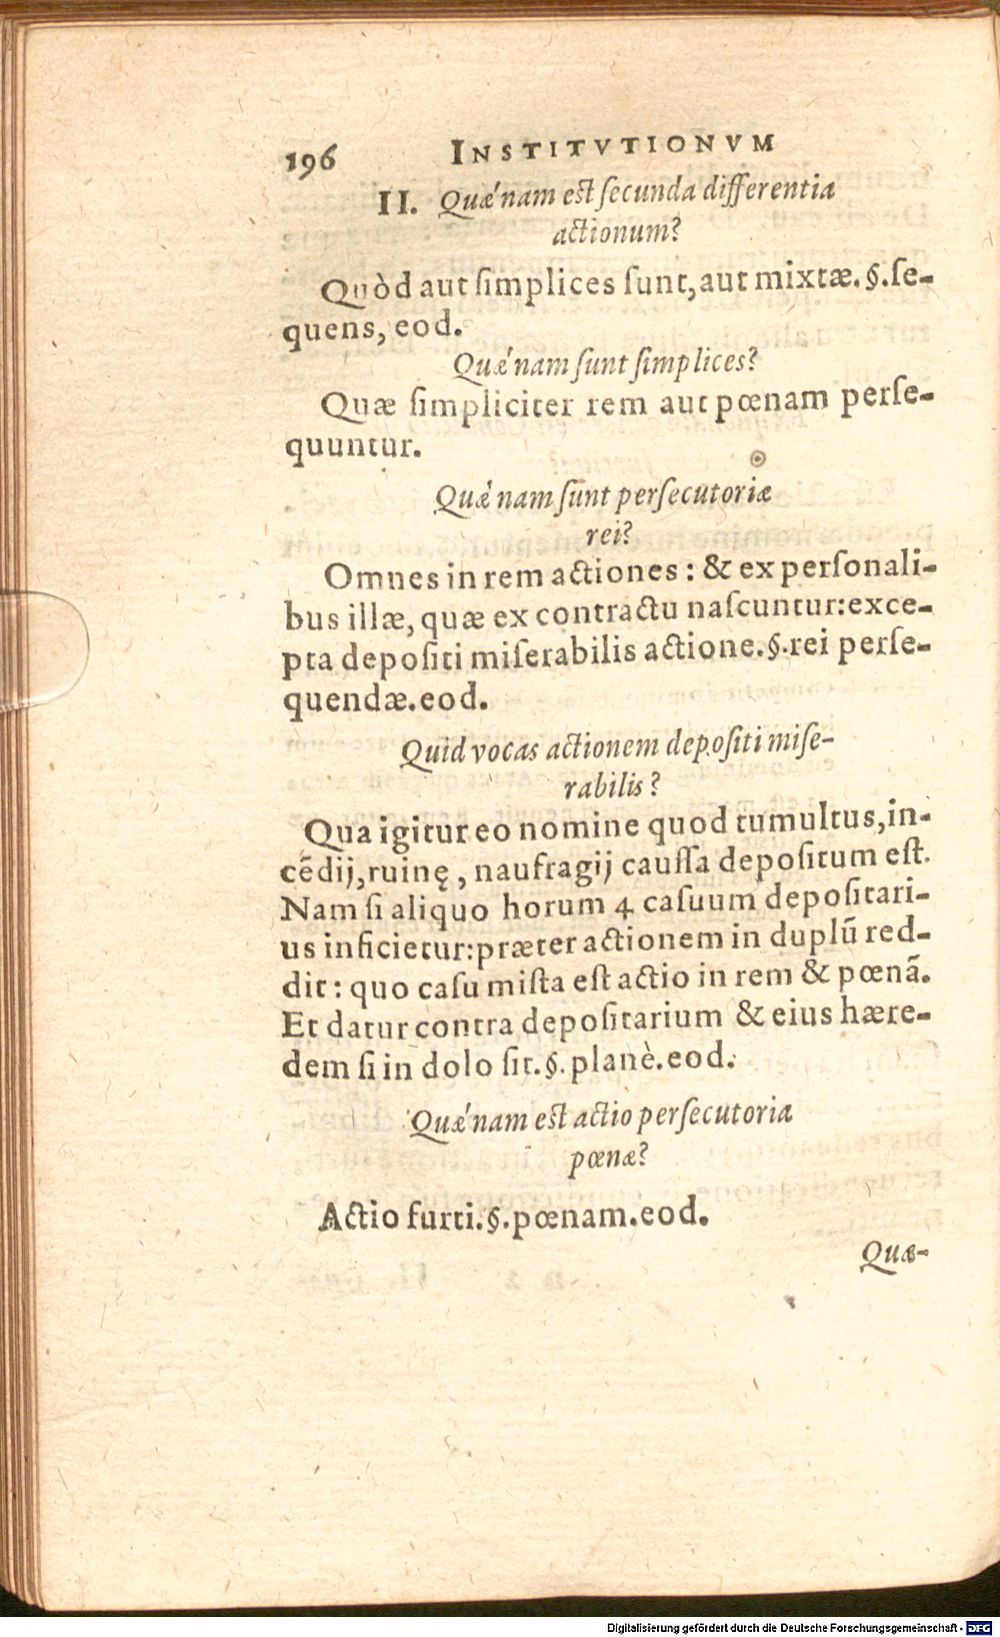 196 INSTITVTIONVM
II. Quæ'nam est ſecunda differentia
actionum?
Quòd aut ſimplices ſunt, aut mixtæ. §. ſe-
quens, eod.
Quæ'nam ſunt ſimplices?
Quæ ſimpliciter rem aut pœnam perſe-
quuntur.
Quæ'nam ſunt perſecutoriæ
rei?
Omnes in rem actiones: & ex perſonali-
bus illæ, quæ ex contractu naſcuntur: exce-
pta depoſiti miſerabilis actione. §. rei perſe-
quendæ. eod.
Quid vocas actionem depoſiti miſe-
rabilis?
Qua igitur eo nomine quod tumultus, in-
cẽdij, ruinę, naufragij cauſſa depoſitum eſt.
Nam ſi aliquo horum 4 caſuum depoſitari-
us inficietur: præter actionem in duplũ red-
dit: quo caſu miſta eſt actio in rem & pœnã.
Et datur contra depoſitarium & eius hære-
dem ſi in dolo ſit. §. planè. eod.
Quæ'nam est actio perſecutoria
pœnæ?
Actio furti. §. pœnam. eod.
Quæ-
Digitalisierung gefördert durch die Deutsche Forschungsgemeinschaft - DFG